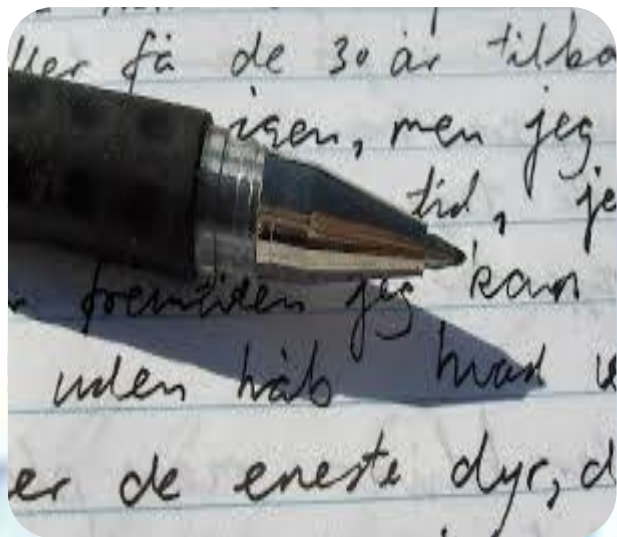 ller få de 30 år tilba
igen, men jeg
tid, je
fremtiden jeg kan
uden håb hvad v
er de eneste dyr, d